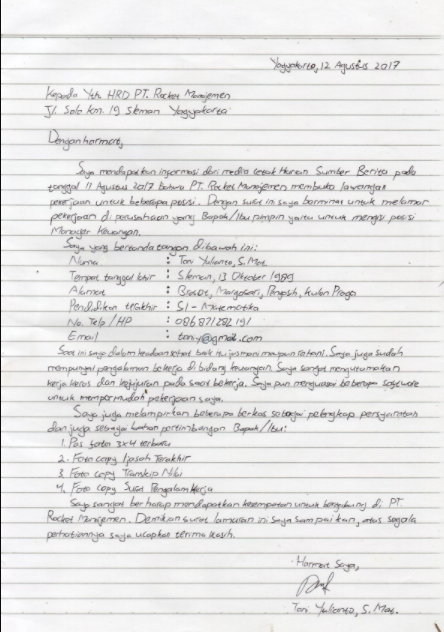 Yogyakarta, 12 Agustus 2017
Kepada Yth. HRD PT. Rocket Manajemen
Jl. Solo km. 19 Sleman Yogyakarta
Dengan hormat,
Saya mendapatkan informasi dari media cetak Harian Sumber Berita pada
tanggal 11 Agustus 2017 bahwa PT. Rocket Manajemen membuka lowongan
pekerjaan untuk beberapa posisi. Dengan surat ini saya berminat untuk melamar
pekerjaan di perusahaan yang Bapak/Ibu pimpin yaitu untuk mengisi posisi
Manager Keuangan.
Saya yang bertanda tangan dibawah ini:
Nama : Toni Yulianto, S. Mat.
Tempat tanggal lahir : Sleman, 13 Oktober 1989
Alamat : Margosari, Pengasih, Kulon Progo
Pendidikan terakhir : S1 - Matematika
No. Telp / HP :
Email : toni.y@gmail.com
Saat ini saya dalam keadaan sehat baik jasmani maupun rohani. Saya juga sudah
mempunyai pengalaman bekerja di bidang keuangan. Saya sangat mengutamakan
kerja keras dan kejujuran pada saat bekerja. Saya pun menguasai beberapa software
untuk mempermudah pekerjaan saya.
Saya juga melampirkan beberapa berkas sebagai pelengkap persyaratan
dan juga sebagai bahan pertimbangan Bapak/Ibu:
1. Pas foto 3x4 terbaru
2. Foto copy Ijasah Terakhir
3. Foto copy Transkip Nilai
4. Foto copy Surat Pengalam Kerja
Saya sangat berharap mendapatkan kesempatan untuk bergabung di PT.
Rocket Manajemen. Demikian surat lamaran ini saya sampaikan, atas segala
perhatiannya saya ucapkan terima kasih.
Hormat Saya,
Toni Yulianto, S. Mat.